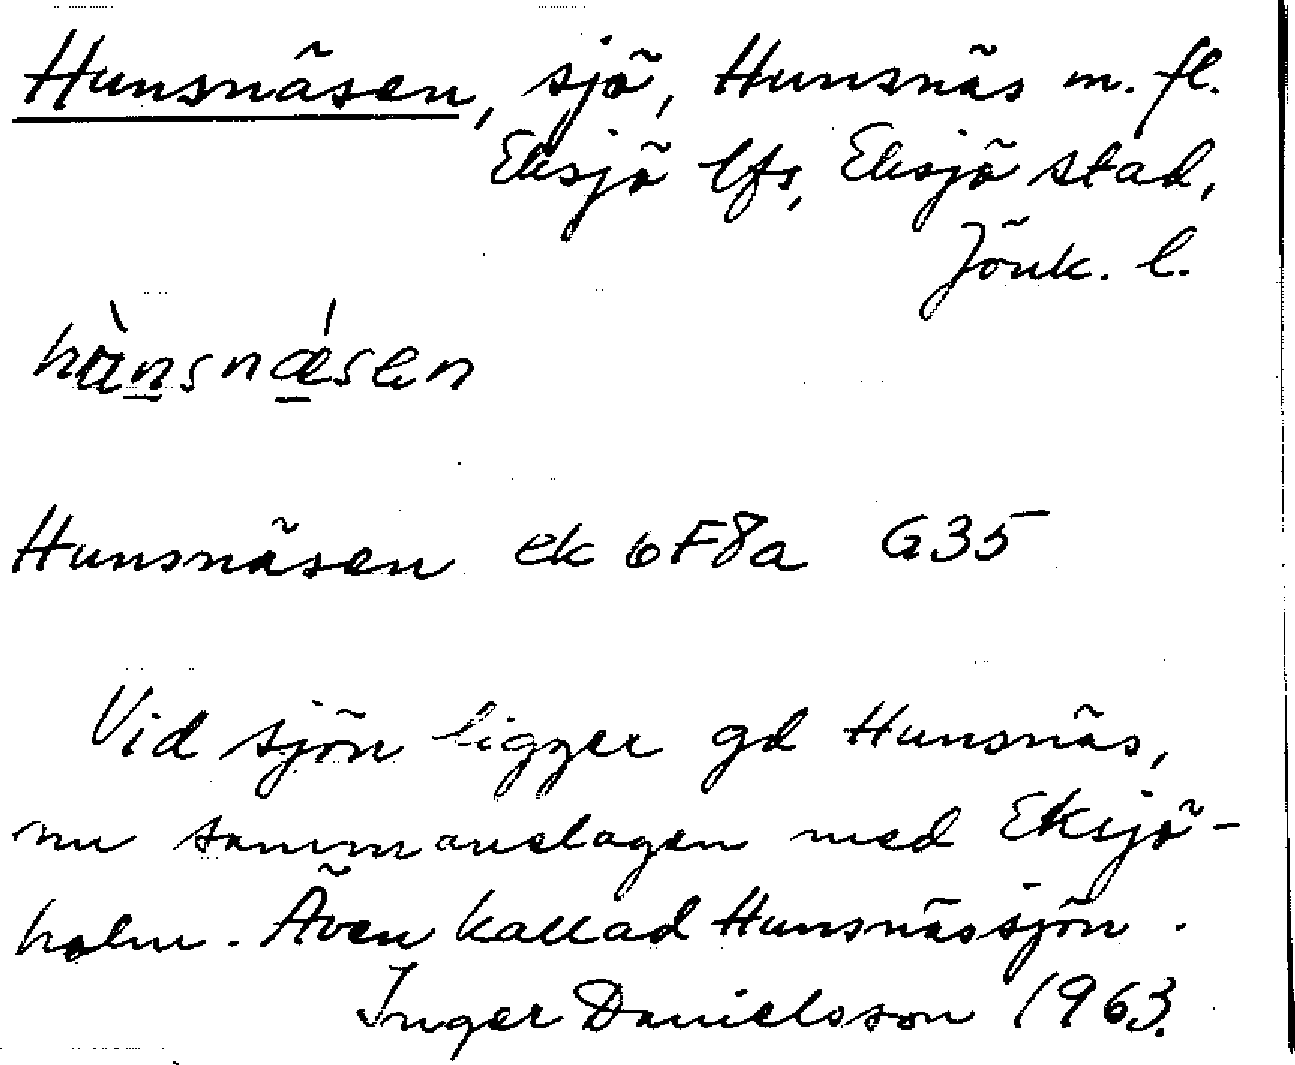 Hunsnäsen, sjö, Hunsnäs m. fl.
Eksjö lfs, Eksjö stad,
Jönk. l.
Hunsnäsen ek 6F8a G35
Vid sjön ligger gd Hunsnäs,
nu sammanslagen med Eksjö-
holm. Även kallad Hunsnässjön.
Inger Danielsson 1963.